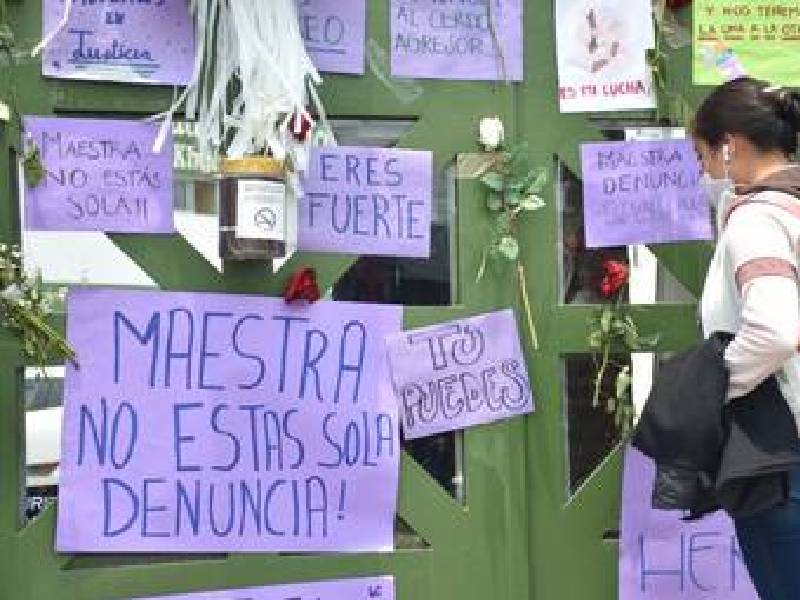 EN
Justicia
EO
AL CERDO
AGRESOR
ES MI LUCHA
Y NOS TENEMOS
LA UNA A LA OTRA
MAESTRA
NO ESTÁS
SOLA!!
ERES
FUERTE
MAESTRA
DENUNCIA
MAESTRA
NO ESTAS SOLA
DENUNCIA!
TÚ
PUEDES
HER